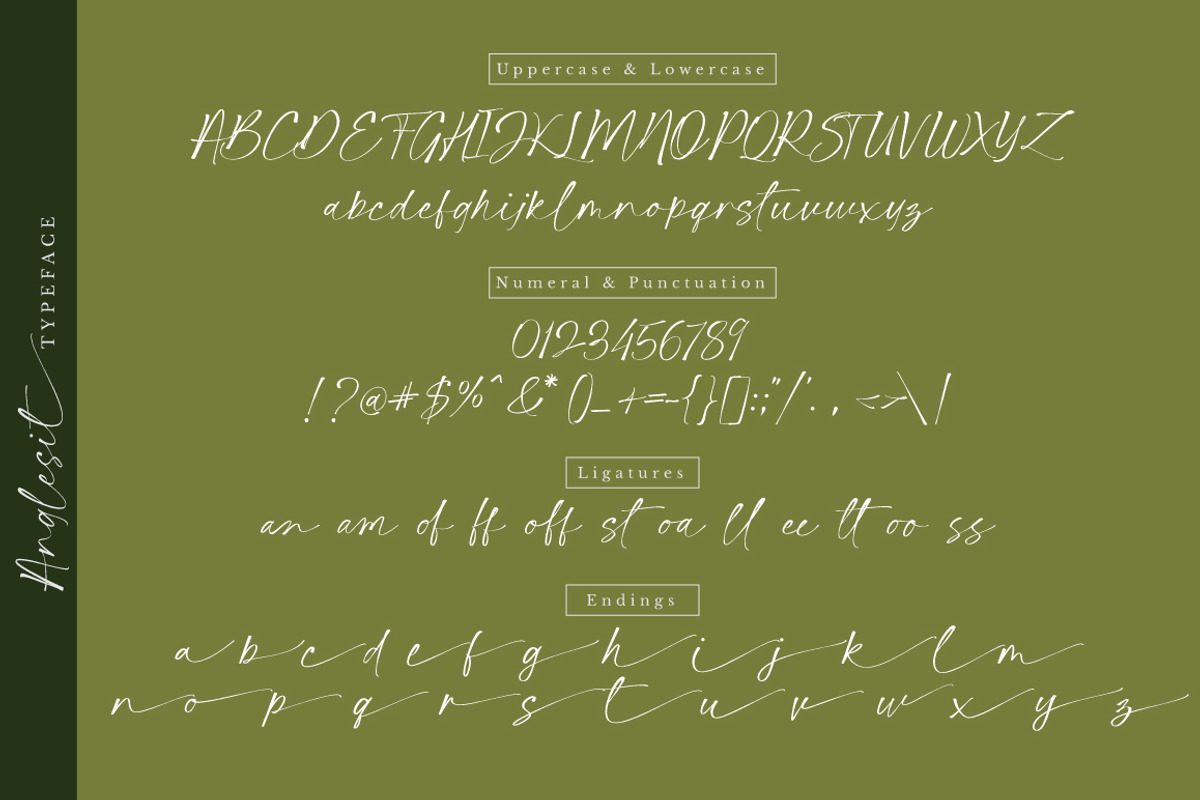 Anglesit TYPEFACE
Uppercase & Lowercase
ABCDEFGHIJKLMNOPQRSTUVWXYZ
abcdefghijklmnopqrstuvwxyz
Numeral & Punctuation
0123456789
!?@#$%^&*()_+=-{}[]:;"/'.,<>\|
Ligatures
an am of ff off st oa ll ee tt oo ss
Endings
a b c d e f g h i j k l m
n o p q r s t u v w x y z